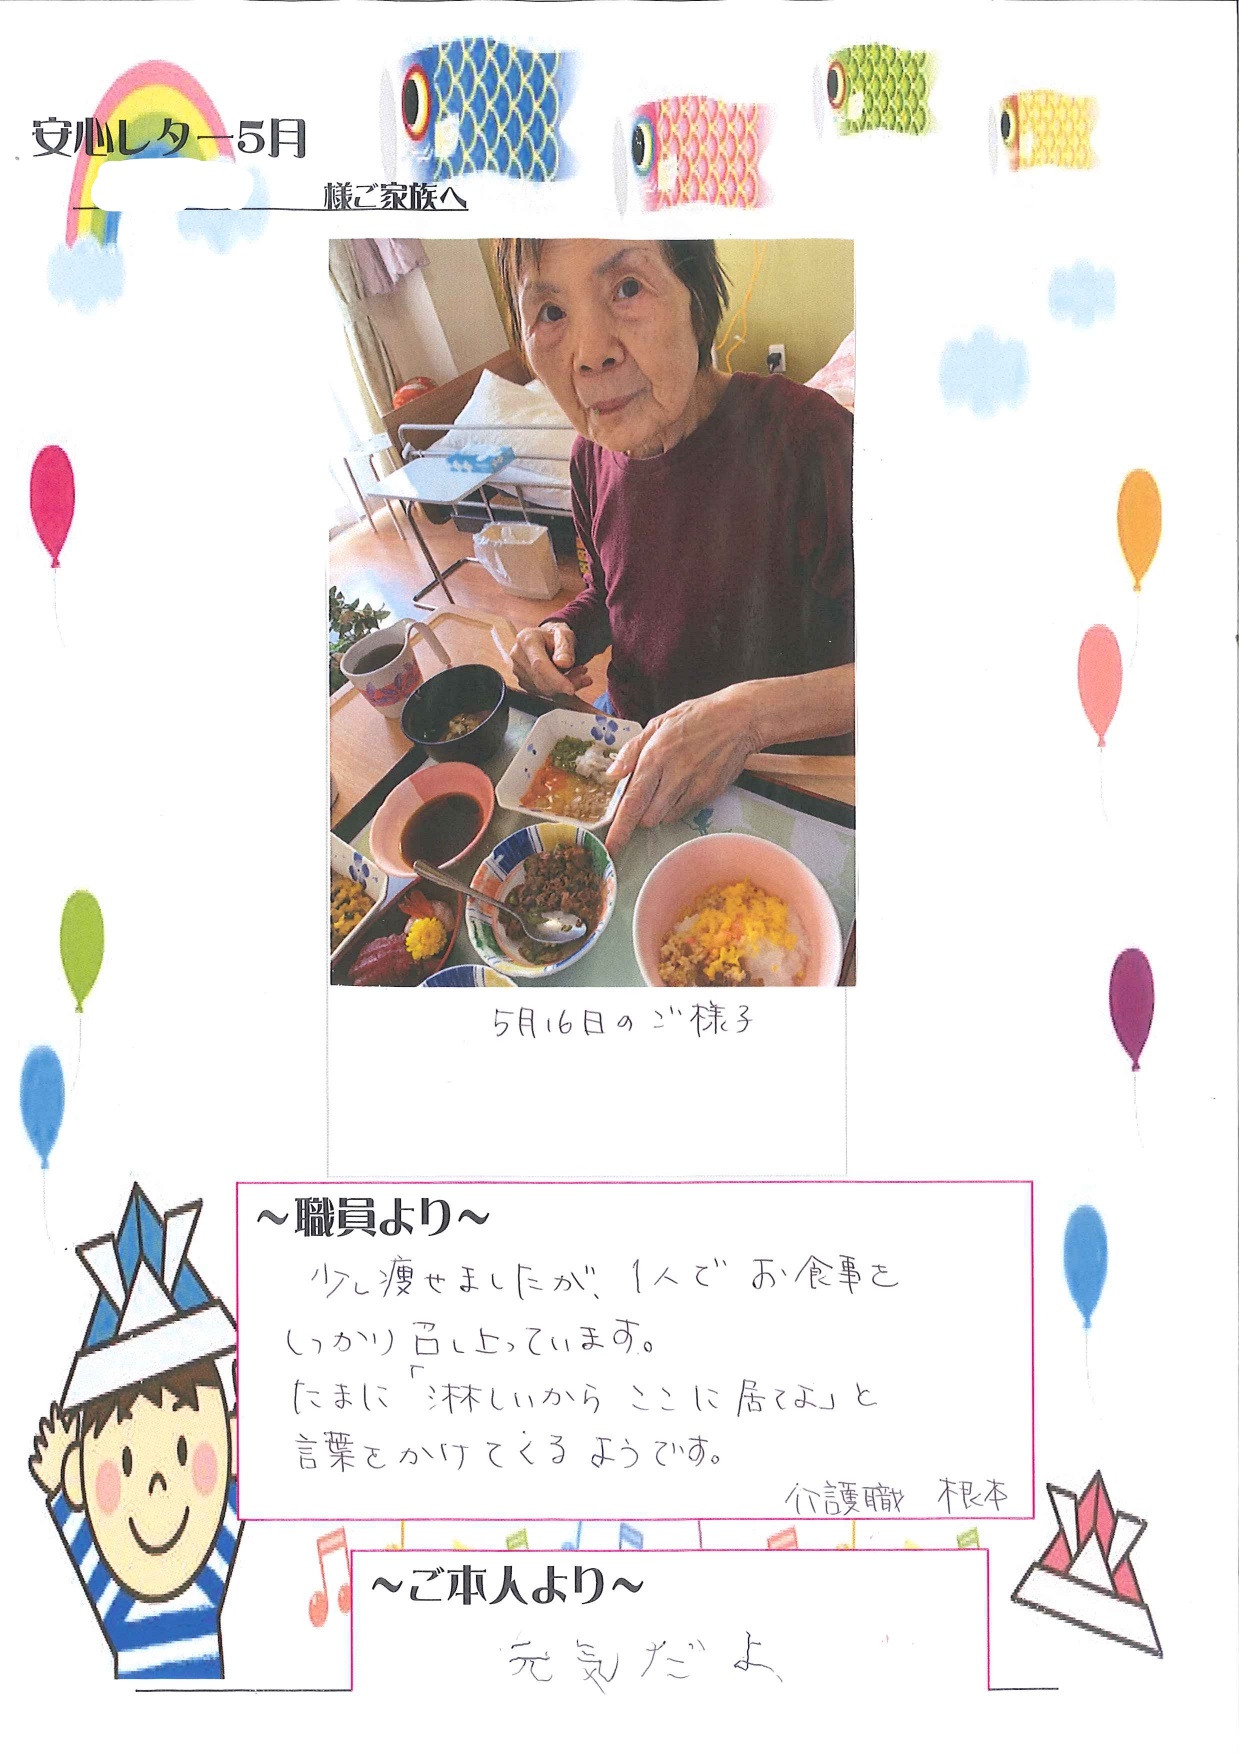 安心レター5月
様ご家族へ
5月16日のご様子
~職員より~
少し痩せましたが、1人でお食事を
しっかり召し上っています。
たまに「淋しいからここに居てよ」と
言葉をかけてくるようです。
介護職 根本
~ご本人より~
元気だよ、